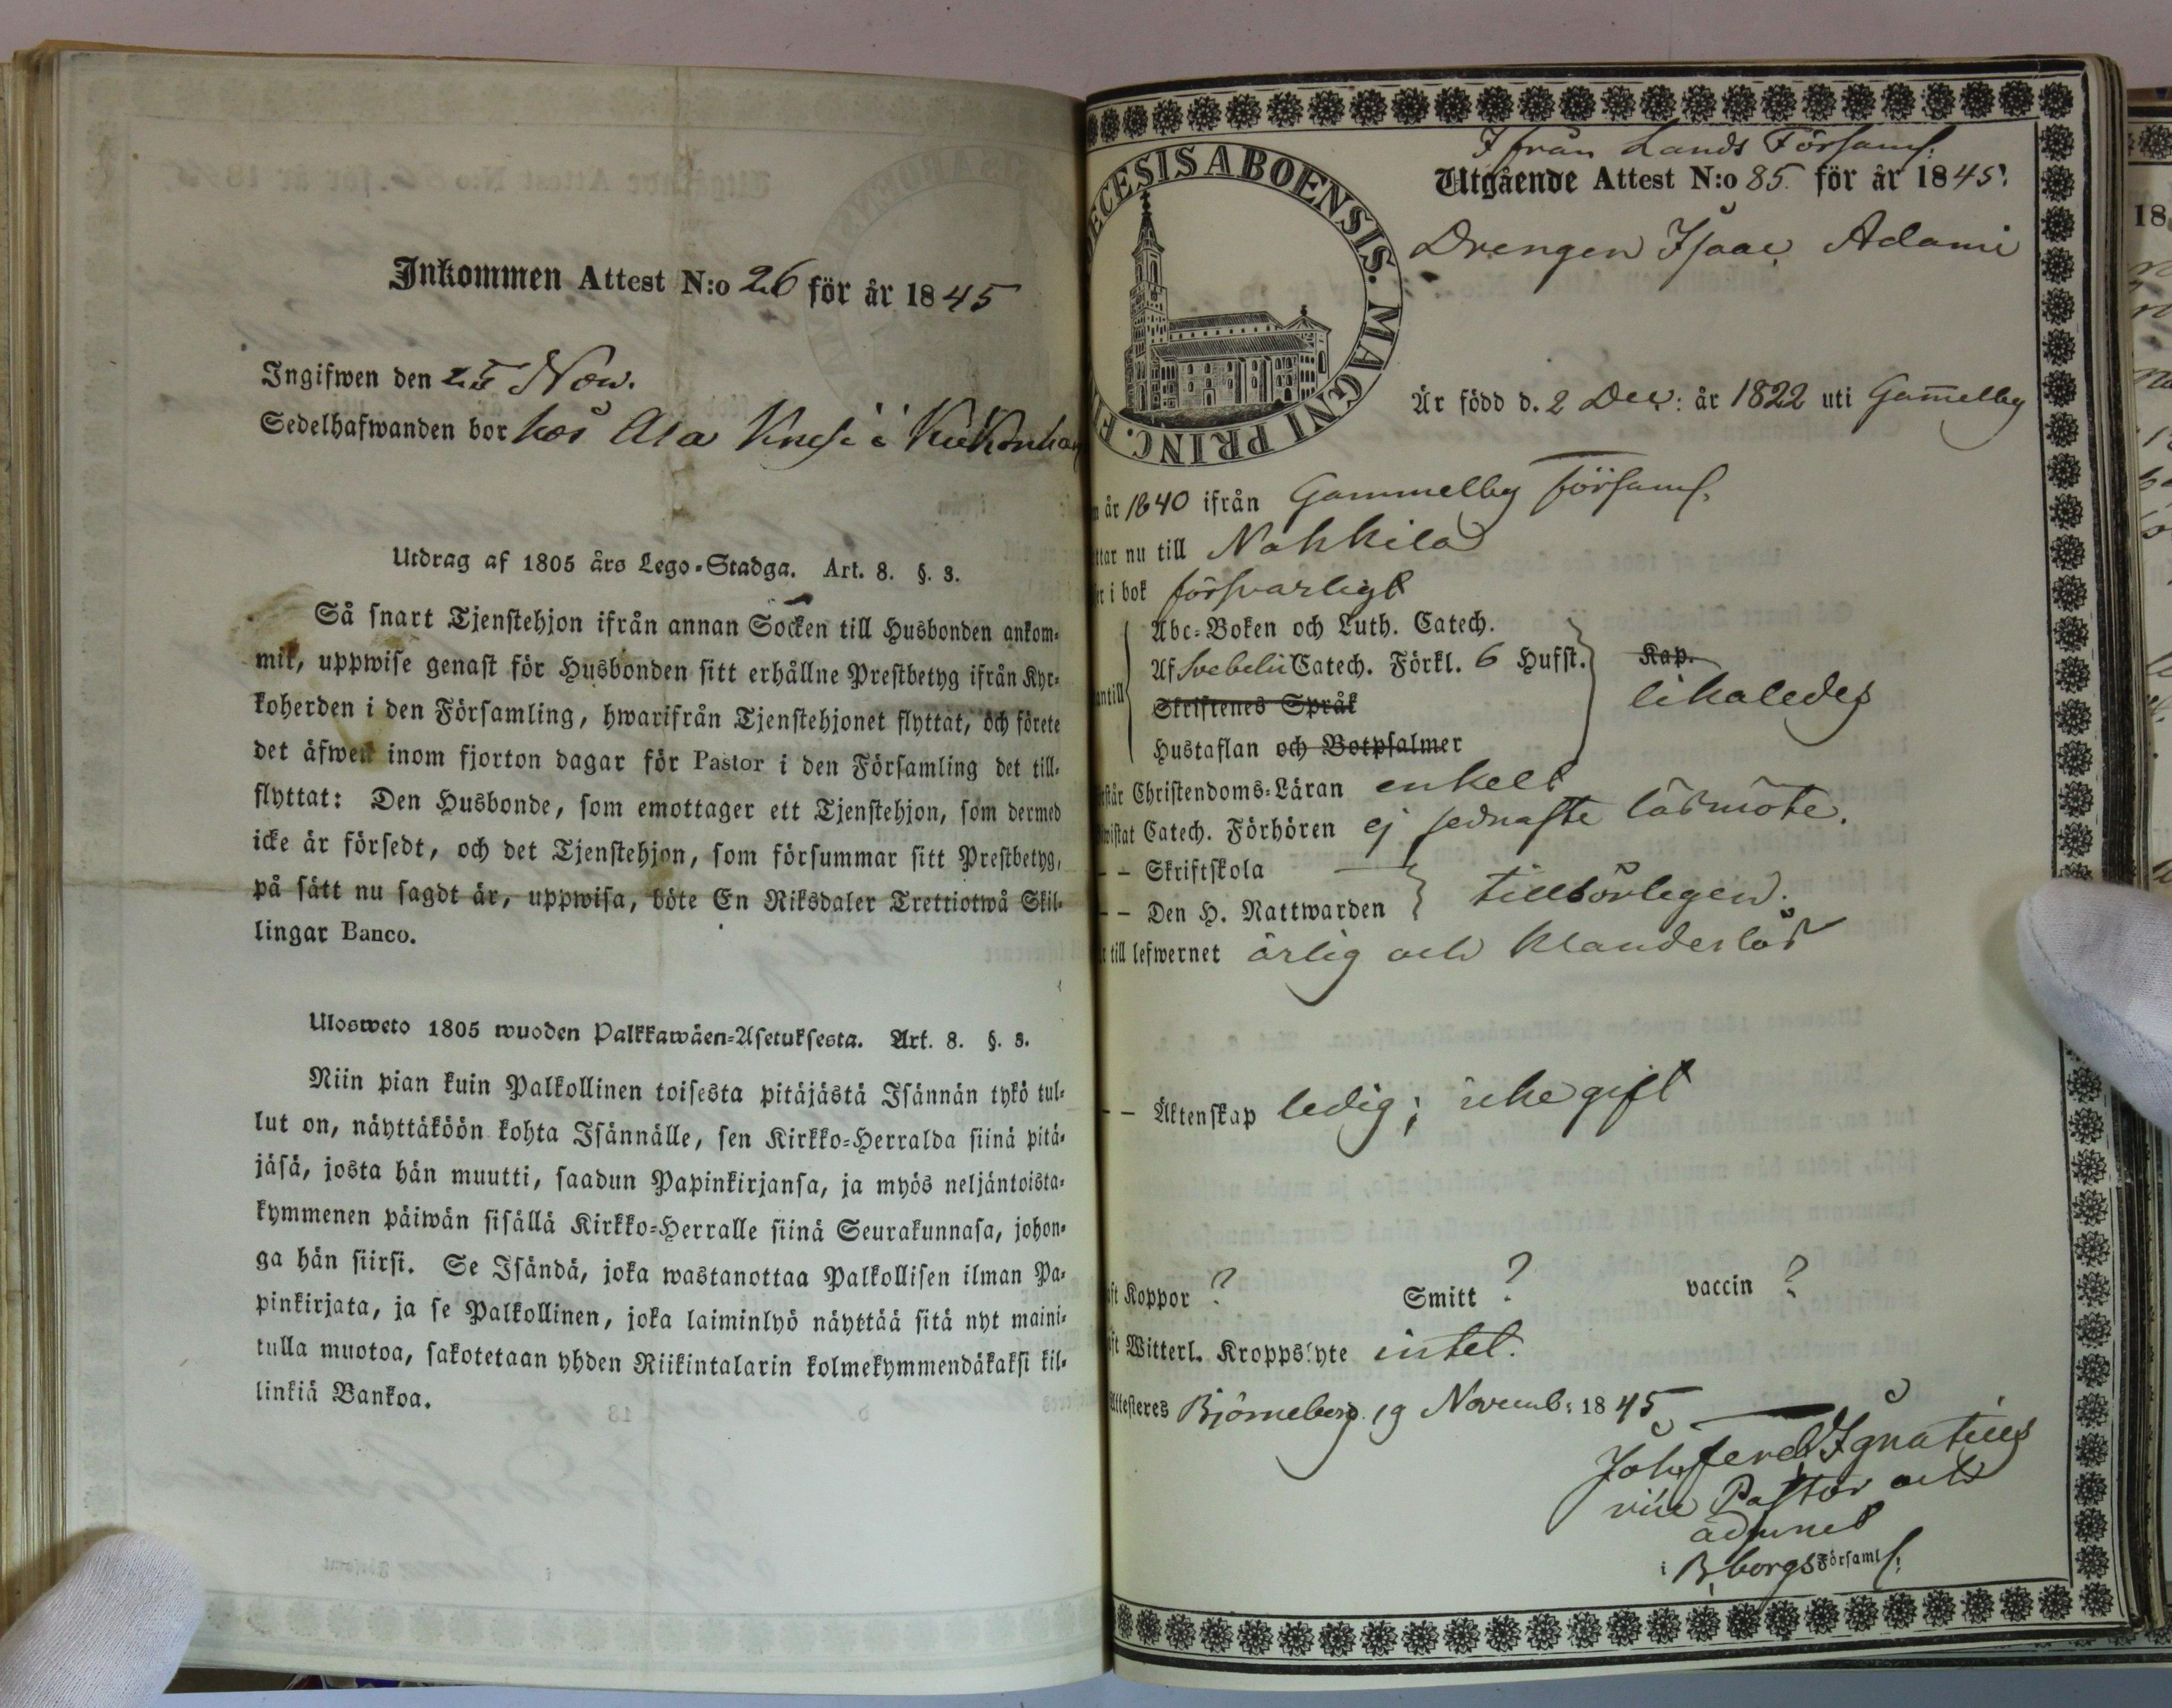 Inkommen Attest N:o 26 för år 1845
Ingifwen den Nov.
Sedelhafwanden bor hos Ala i
Utdrag af 1805 års Lego-Stadga. Art. 8. §. 3.
Så snart Tjenstehjon ifrån annan Socken till Husbonden ankom-
mit, uppwise genast för Husbonden sitt erhållne Prestbetyg ifrån Kyr-
koherden i den Församling, hwarifrån Tjenstehjonet flyttat, och förete
det äfwen inom fjorton dagar för Pastor i den Församling det till-
flyttat: Den Husbonde, som emottager ett Tjenstehjon, som dermed
icke är försedt, och det Tjenstehjon, som försummar sitt Prestbetyg,
på sätt nu sagdt är, uppwisa, böte En Riksdaler Trettiotwå Skil-
lingar Banco.
Ulosweto 1805 wuoden Palkkawäen-Asetuksesta. Art. 8. §. 3.
Niin pian kuin Palkollinen toisesta pitäjästä Isännän tykö tul-
lut on, näyttäköön kohta Isännälle, sen Kirkko-Herralda siinä pitä-
jäsä, josta hän muutti, saadun Papinkirjansa, ja myös neljäntoista-
kymmenen päiwän sisällä Kirkko-Herralle siinä Seurakunnasa, johon-
ga hän siirsi. Se Isändä, joka wastanottaa Palkollisen ilman Pa-
pinkirjata, ja se Palkollinen, joka laiminlyö näyttää sitä nyt maini-
tulla muotoa, sakotetaan yhden Riikintalarin kolmekymmendäkaksi kil-
linkiä Bankoa.
DECESIS ABOENSIS. MAGNI PRINC. FI
Ifrån Lands Församl.
Utgående Attest N:o 85. för år 1845.
Drengen Isaac Adami
Är född d. 2 Dec: år 1822 uti Gammelby
år 1840 ifrån Gammelby Församl.
ttar nu till Nakkila
i bok försvarligt
Abc-Boken och Luth. Catech.
Af Svebelii Catech. Förkl. 6 Hufst. Kap.
antill likaledes
Skriftenes Språk
Hustaflan och Botpsalmer
står Christendoms-Läran enkelt
wistat Catech. Förhören ej sednaste läsmöte.
– – Skriftskola
– – Den H. Nattwarden tillbörligen.
till lefwernet ärlig och klanderlös
– – Äktenskap ledig; icke gift
ft Koppor ? Smitt ? vaccin ?
ft Witterl. Kroppslyte intet.
Attesteres Björneborg 19 Novemb: 1845
Joh. Ferd. Ignatius
vice Pastor och
adjunct
i B.borgs Församl.